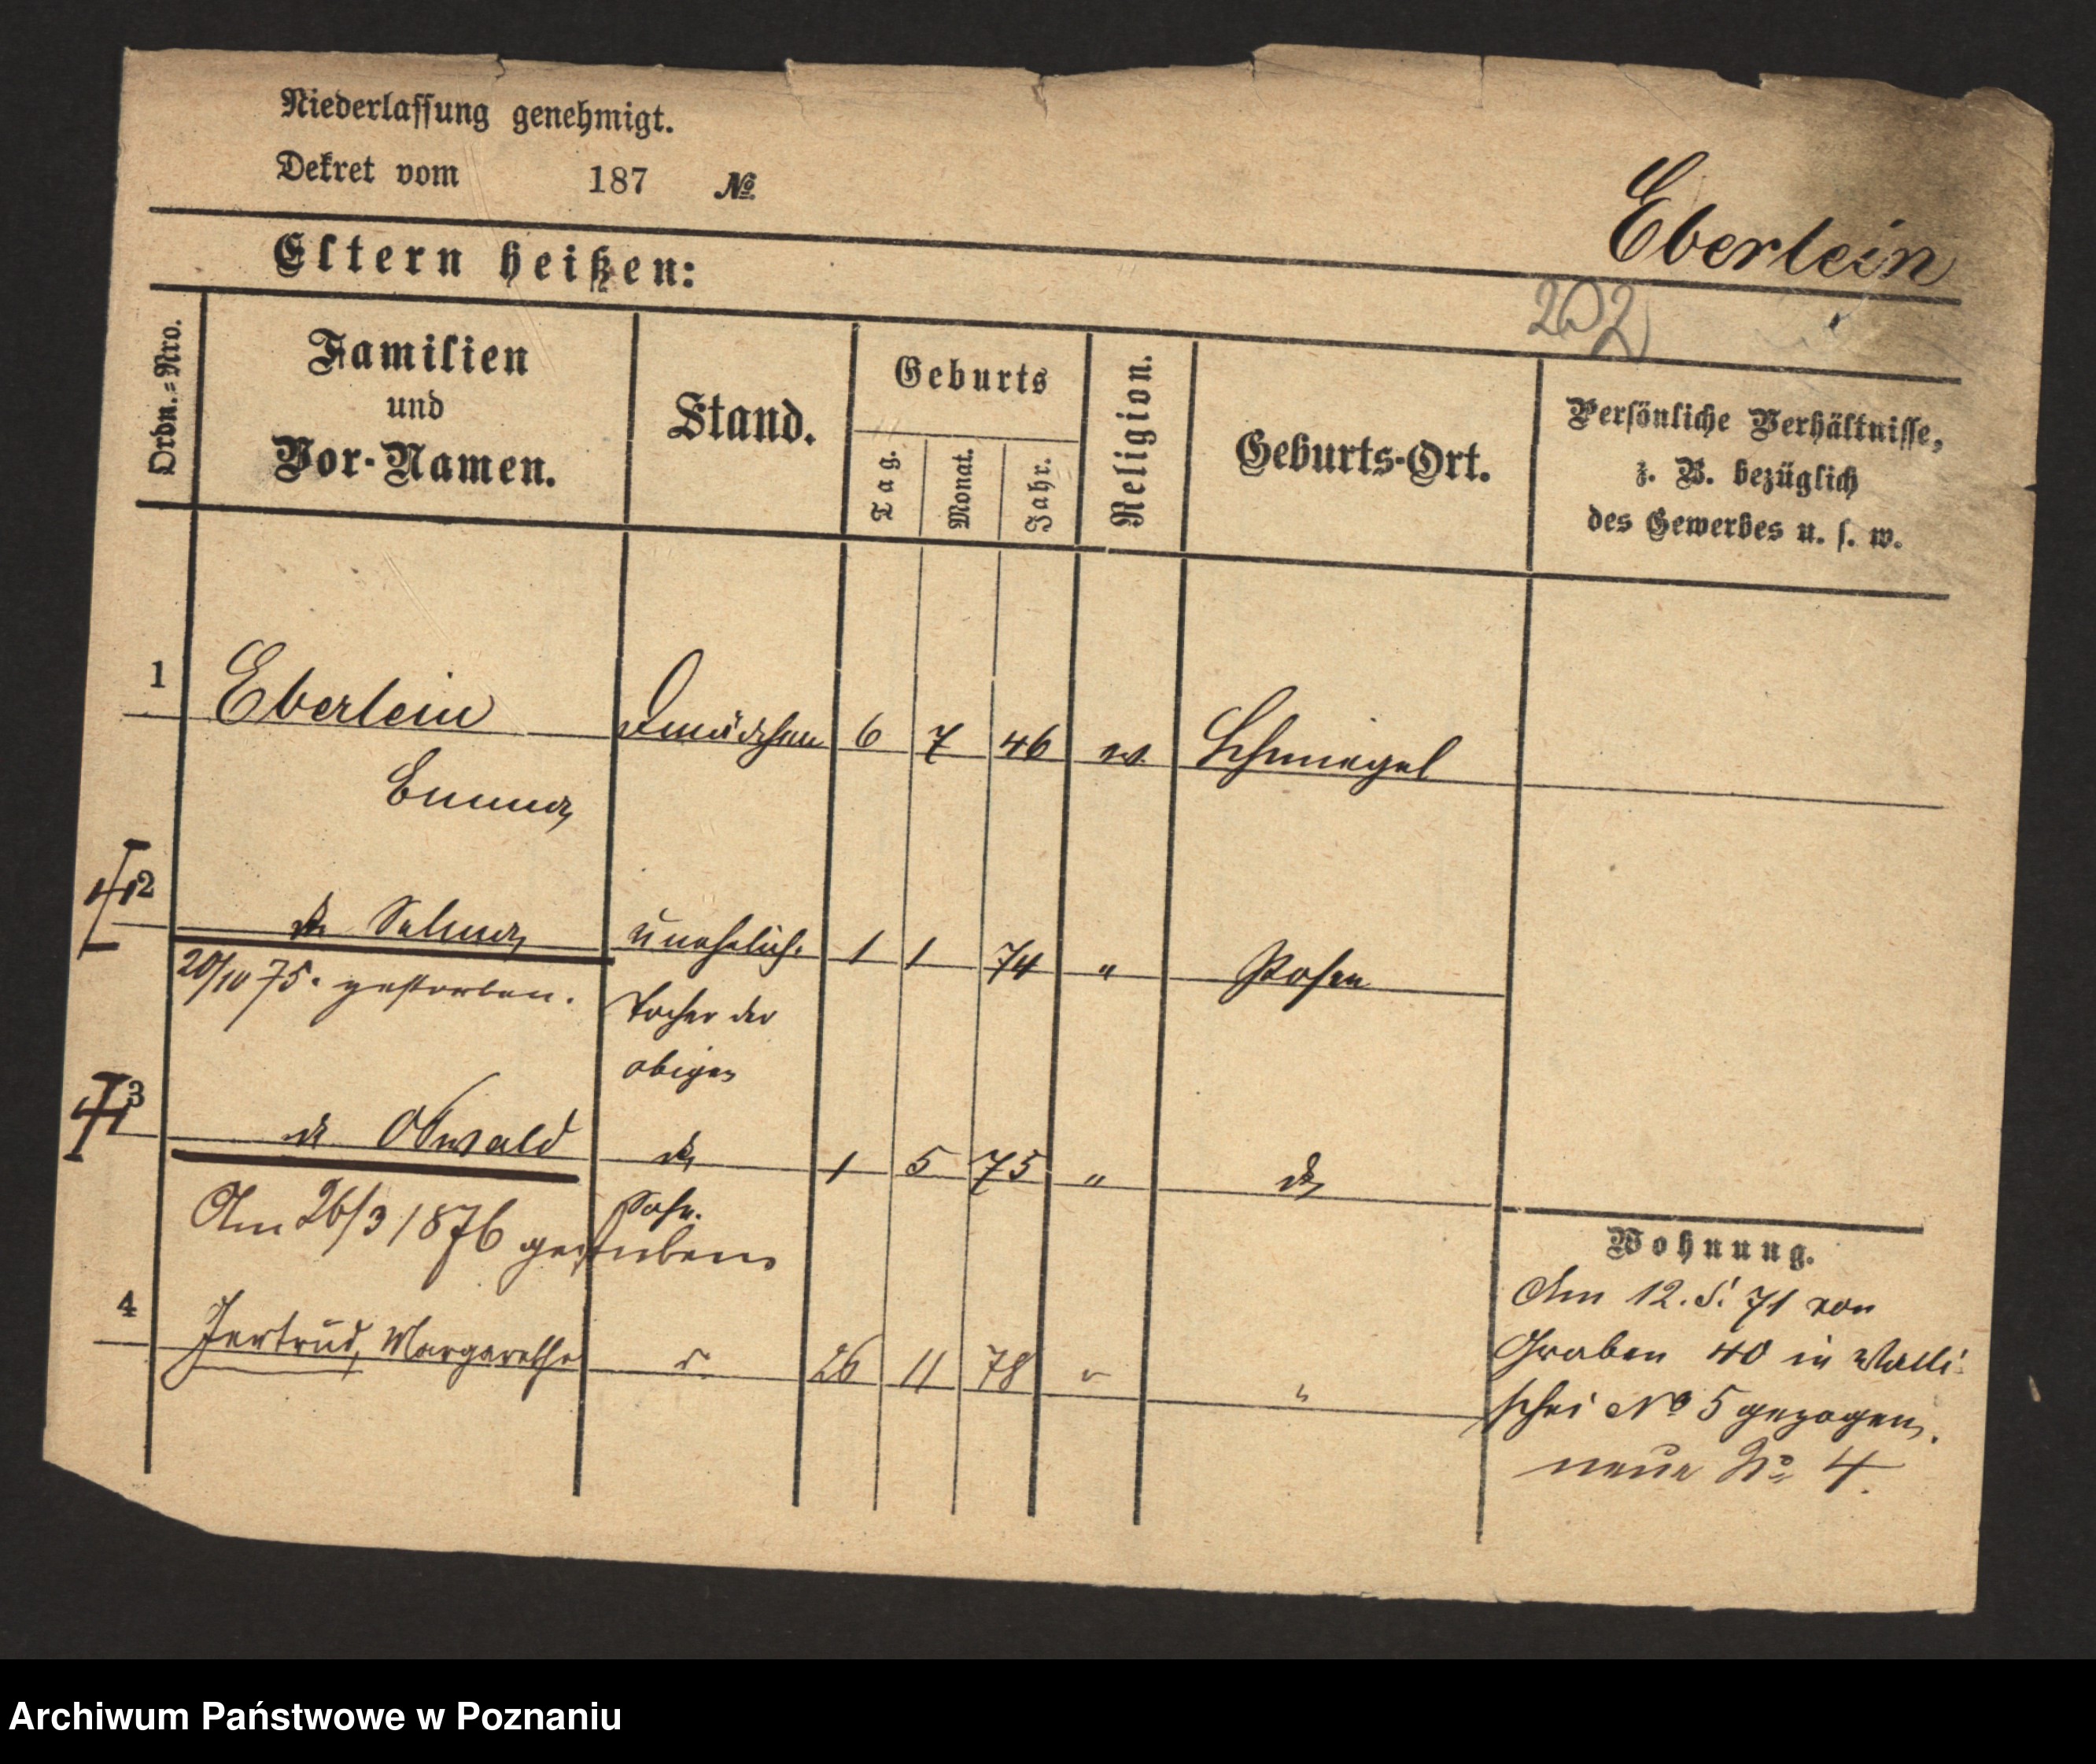 Niederlassung genehmigt.
Dekret vom 187 №
Eberlein
Eltern heißen:
202
Ordn.=Nro.
Familien
und
Vor-Namen.
Stand.
Geburts
Tag.
Monat.
Jahr.
Religion.
Geburts-Ort.
Persönliche Verhältnisse,
z. B. bezüglich
des Gewerbes u. s. w.
1 Eberlein Dmädchen 6 7 46 ev. Schmiegel
Emma
2 do Selma unehelich. 1 1 74 " Posen
20/10 75. gestorben.
Tocher der
obigen
3 do Oswald do 1 5 75 " do
Sohn.
Am 26/3 1876 gestorben
4 Gertrud, Margarethe 26 11 78 "
Wohnung.
Am 12. 5. 71 von
Graben 40 in Walli
schei No 5 gezogen.
neue No 4.
Archiwum Państwowe w Poznaniu